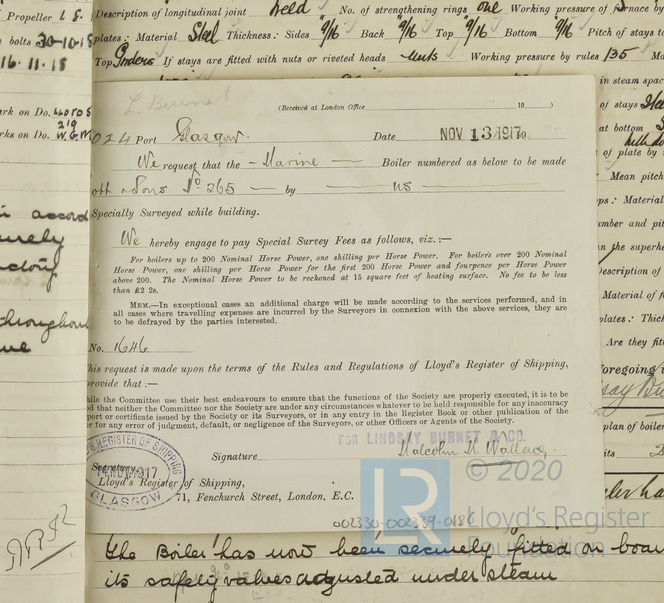 Propeller
Description of longitudinal joint Weld No. of strengthening rings one Working pressure of furnace by
bolts 30-10-18
plates: Material Steel Thickness: Sides 9/16 Back 9/16 Top 9/16 Bottom 9/16 Pitch of stays to
16.11.18
Top Girders If stays are fitted with nuts or riveted heads nuts Working pressure by rules 135
in steam space
(Received at London Office 19 )
L Burnet
of stays
ark on Do.
024 Port Glasgow. Date NOV 13 1917 19
at bottom
219
rks on Do. W.G.M
We request that the - Marine - Boiler numbered as below to be made
of plate by
ott & Sons No 265 — by — us —
Mean pitch
Specially Surveyed while building.
ps: Material
accord
We hereby engage to pay Special Survey Fees as follows, viz.:—
umber and pit
n the superhe
For boilers up to 200 Nominal Horse Power, one shilling per Horse Power. For boilers over 200 Nominal
Horse Power, one shilling per Horse Power for the first 200 Horse Power and fourpence per Horse Power
above 200. The Nominal Horse Power to be reckoned at 15 square feet of heating surface. No fee to be less
than £2 2s.
Description of
Material of
MEM.—In exceptional cases an additional charge will be made according to the services performed, and in
all cases where travelling expenses are incurred by the Surveyors in connexion with the above services, they are
to be defrayed by the parties interested.
plates: Thick
throughout
Are they fit
No. 1646
his request is made upon the terms of the Rules and Regulations of Lloyd's Register of Shipping,
provide that :—
foregoing
hile the Committee use their best endeavours to ensure that the functions of the Society are properly executed, it is to be
d that neither the Committee nor the Society are under any circumstances whatever to be held responsible for any inaccuracy
port or certificate issued by the Society or its Surveyors, or in any entry in the Register Book or other publication of the
or for any error of judgment, default, or negligence of the Surveyors, or other Officers or Agents of the Society.
plan of boiler
FOR LINDSAY, BURNET & CO.
Signature Malcolm M Wallace
'S REGISTER OF SHIPPING
14 NOV 1917
GLASGOW
Secretary,
Lloyd's Register of Shipping,
71, Fenchurch Street, London, E.C.
LR © 2020
Lloyd's Register
Foundation
002330-002339-0186
the Boiler has now been securely fitted on boar
its safety valves adjusted under steam